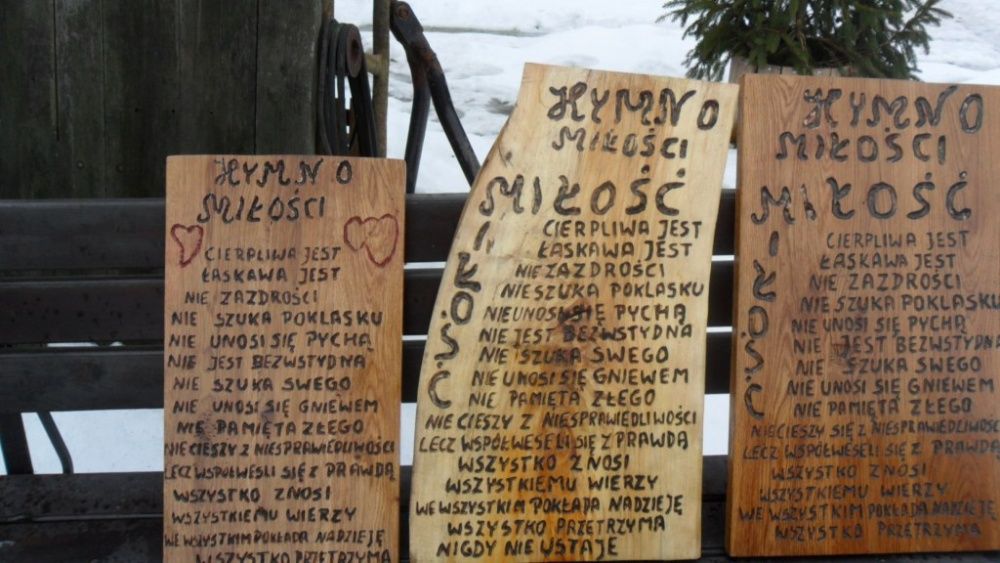 HYMN O
MIŁOŚCI
CIERPLIWA JEST
ŁASKAWA JEST
NIE ZAZDROŚCI
NIE SZUKA POKLASKU
NIE UNOSI SIĘ PYCHĄ
NIE JEST BEZWSTYDNA
NIE SZUKA SWEGO
NIE UNOSI SIĘ GNIEWEM
NIE PAMIĘTA ZŁEGO
NIE CIESZY Z NIESPRAWIEDLIWOŚCI
LECZ WSPÓŁWESLI SIĘ Z PRAWDĄ
WSZYSTKO ZNOSI
WSZYSTKIEMU WIERZY
WE WSZYSTKIM POKŁADA NADZIEJĘ
WSZYSTKO PRZETRZYMA
HYMN O
MIŁOŚCI
MIŁOŚĆ
MIŁOŚĆ
CIERPLIWA JEST
ŁASKAWA JEST
NIE ZAZDROŚCI
NIE SZUKA POKLASKU
NIE UNOSI SIĘ PYCHĄ
NIE JEST BEZWSTYDNA
NIE SZUKA SWEGO
NIE UNOSI SIĘ GNIEWEM
NIE PAMIĘTA ZŁEGO
NIE CIESZY Z NIESPRAWIEDLIWOŚCI
LECZ WSPÓŁWESELI SIĘ Z PRAWDĄ
WSZYSTKO ZNOSI
WSZYSTKIEMU WIERZY
WE WSZYSTKIM POKŁADA NADZIEJĘ
WSZYSTKO PRZETRZYMA
NIGDY NIE USTAJE
HYMN O
MIŁOŚCI
MIŁOŚĆ
MIŁOŚĆ
CIERPLIWA JEST
ŁASKAWA JEST
NIE ZAZDROŚCI
NIE SZUKA POKLASKU
NIE UNOSI SIĘ PYCHĄ
NIE JEST BEZWSTYDNA
NIE SZUKA SWEGO
NIE UNOSI SIĘ GNIEWEM
NIE PAMIĘTA ZŁEGO
NIE CIESZY Z NIESPRAWIEDLIWOŚCI
LECZ WSPÓŁWESELI SIĘ Z PRAWDĄ
WSZYSTKO ZNOSI
WSZYSTKIEMU WIERZY
WE WSZYSTKIM POKŁADA NADZIEJĘ
WSZYSTKO PRZETRZYMA